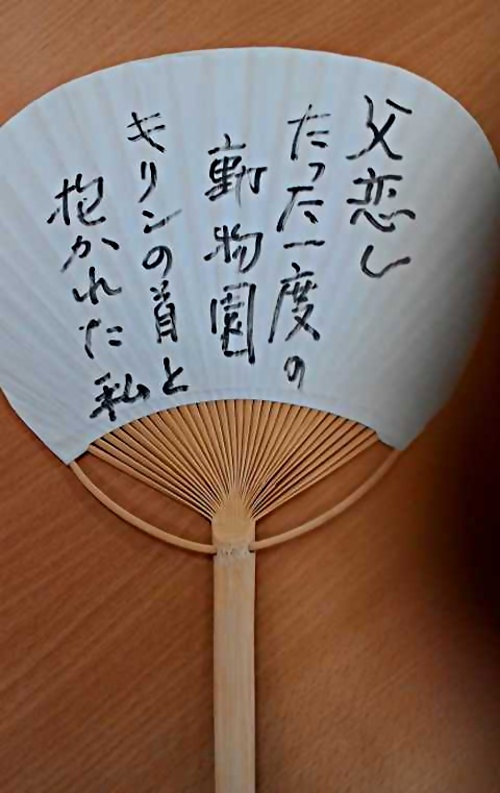 父恋し
たった一度の
動物園
キリンの首と
抱かれた私